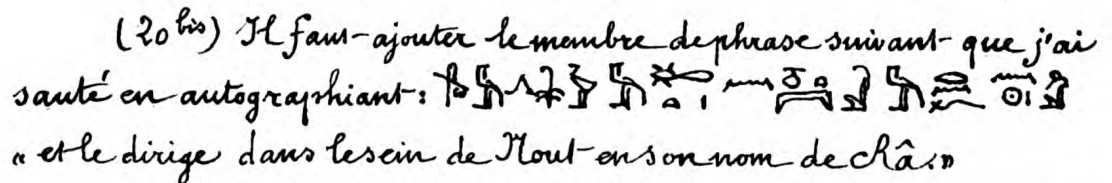 (20 bis) Il faut-ajouter le membre de phrase suivant- que j'ai
sauté en autographiant:
« et le dirige dans le sein de Nout-en son nom de châ.»